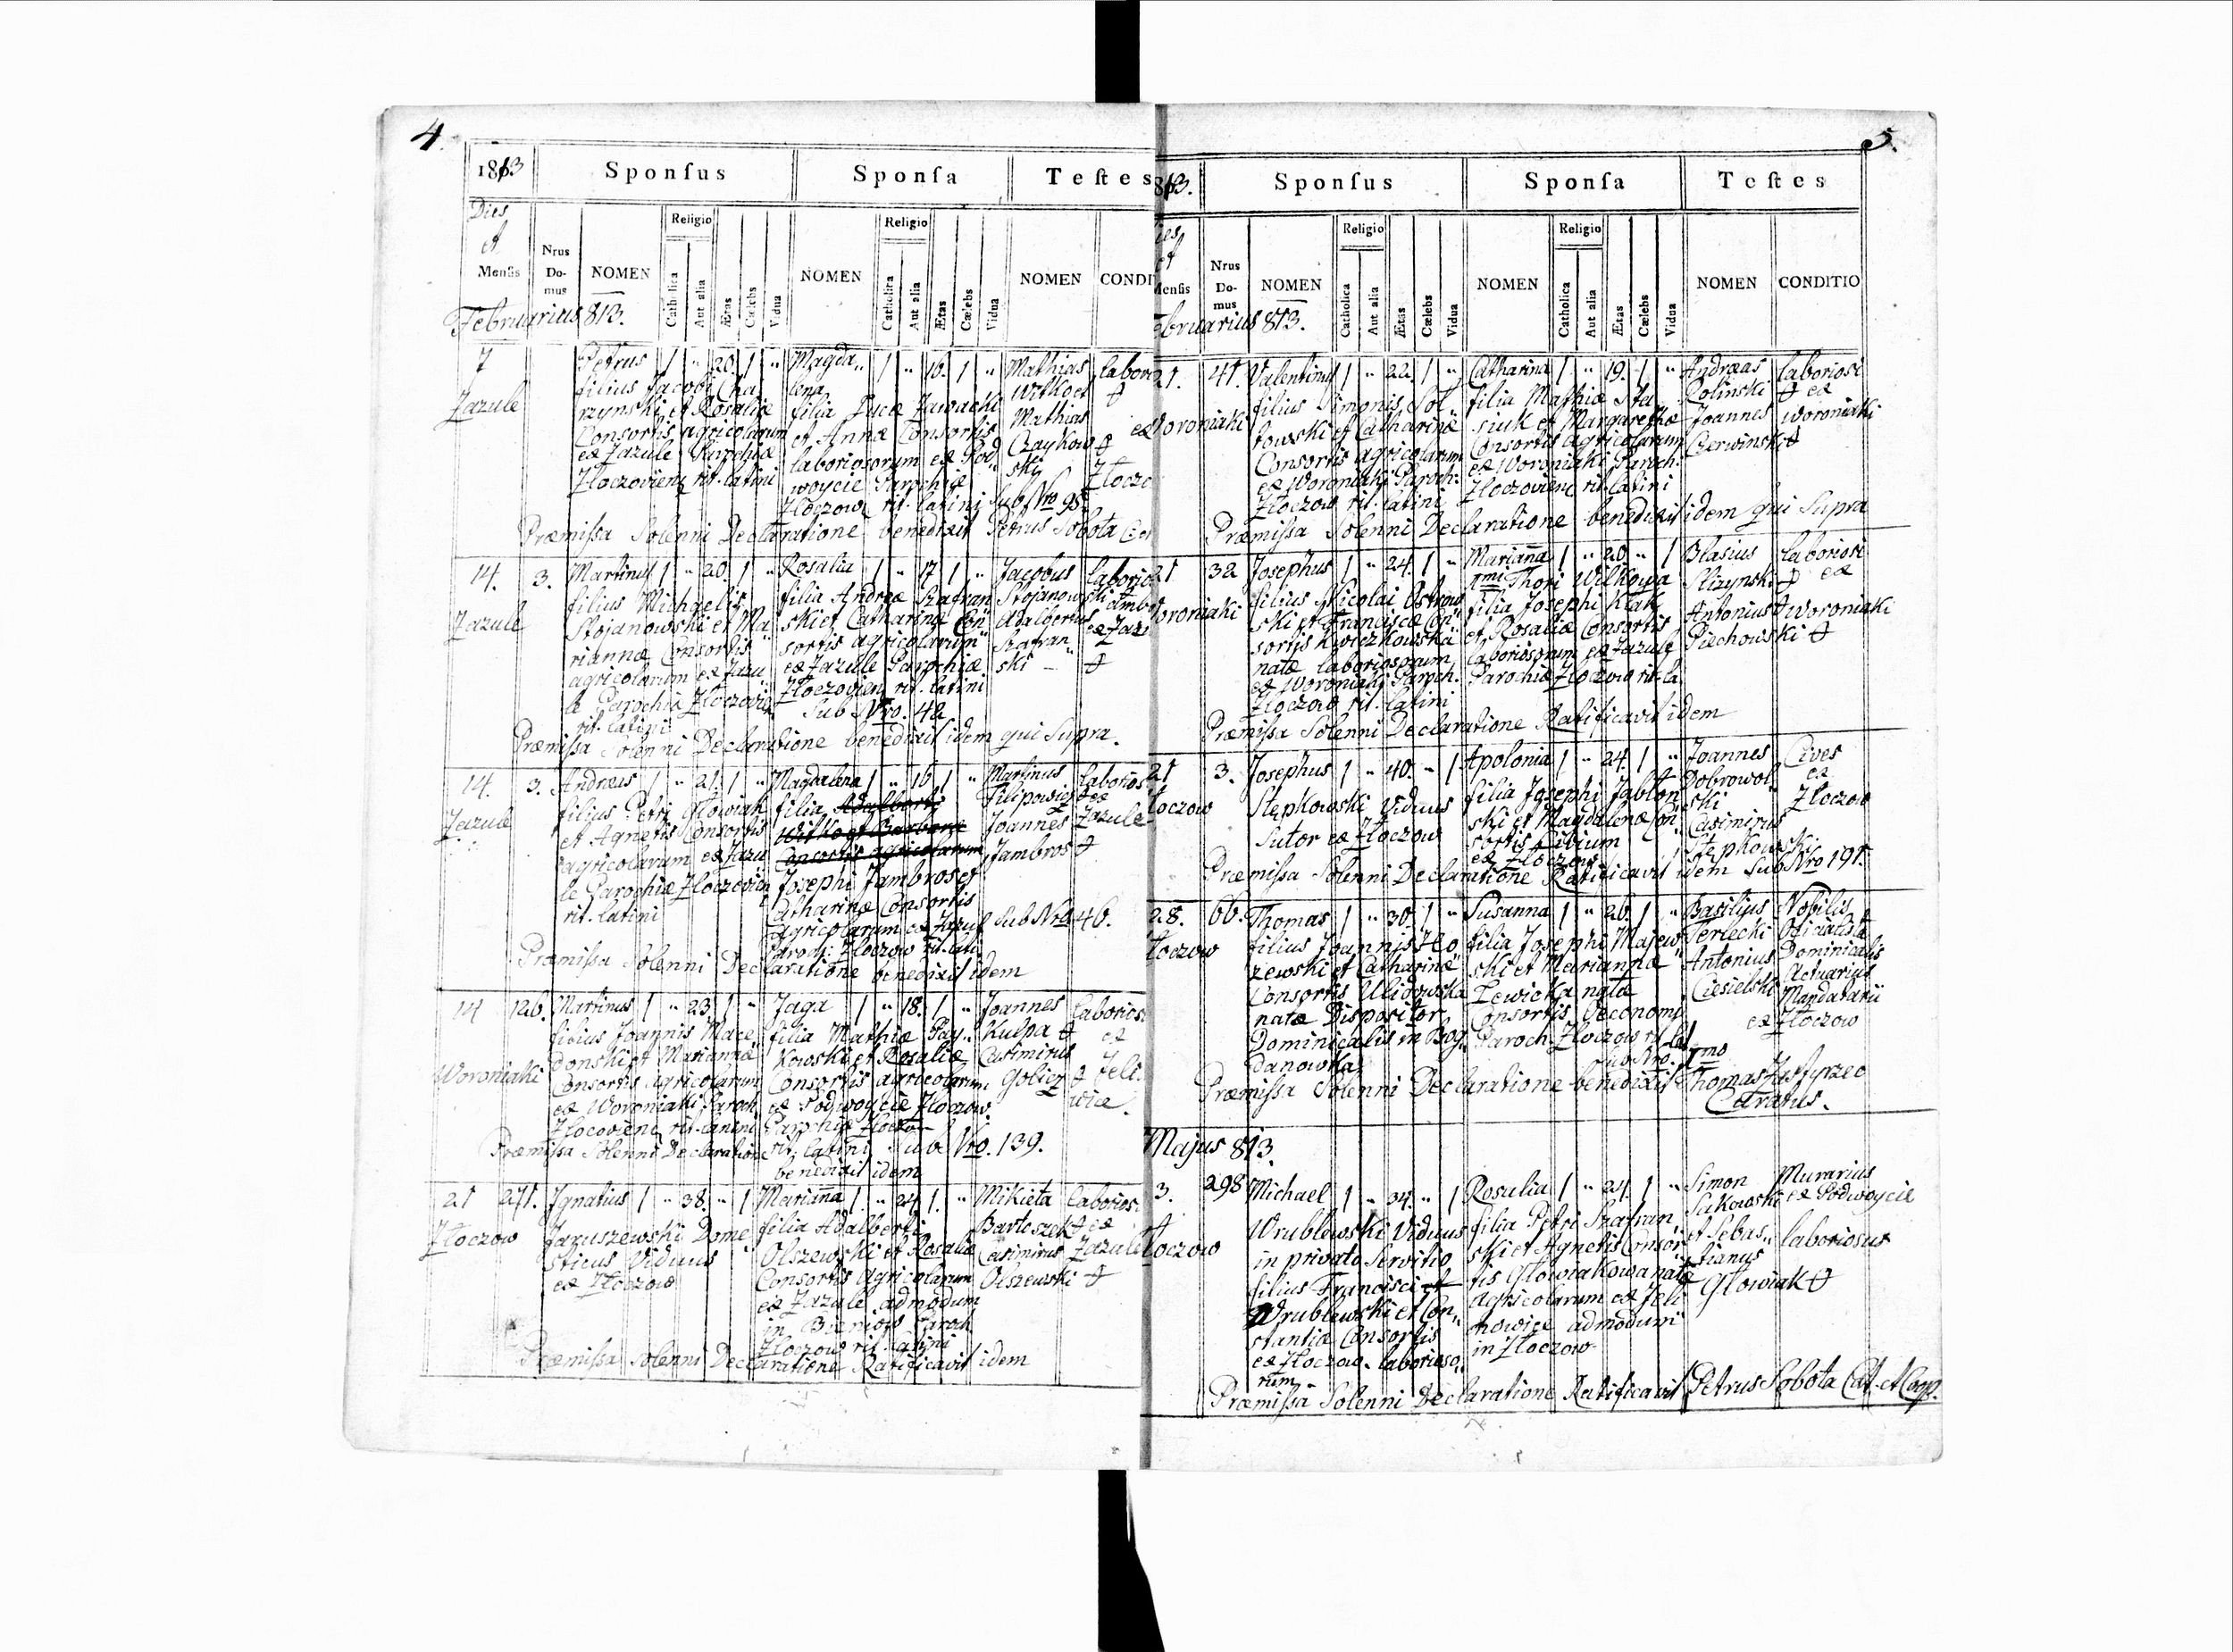 4.
1813
Sponſus
Sponſa
Teſtes
Dies
et
Menſis
Nrus
Do-
mus
NOMEN
Religio
Catholica
Aut alia
Ætas
Cælebs
Vidua
NOMEN
Religio
Catholica
Aut alia
Ætas
Cælebs
Vidua
NOMEN
CONDI
Februarius 813.
7
Zazule
Petrus 1 " 20. 1 "
filius Jacobi Cha
rzynski et Rosaliæ
Consortis agricolarum
ex Zazule Parochiæ
Złoczovien rit. latini
Magda„ 1 " 16. 1 "
lena
filia Lucæ Zawacki
et Annæ Consortis
laboriosorum ex Pod„
woycie Parochiæ
Złoczow rit. latini Sub Nro 95.
Mathias
Witko et
Mathias
Czaykow
ski
labori
ex
Złocz
Præmiſsa Solenni Declaratione benedixit Petrus Sobota
14.
Zazule
3.
Martinus 1 " 20. 1 "
filius Michaelis
Stojanowski et Ma„
riannæ Consortis
agricolarum ex Zazu„
le Parochiæ Złoczovien
rit. latini
Rosalia 1 " 17 1 "
filia Andreæ Szafran
ski et Catharinæ Con„
sortis agricolarum
ex Zazule Parochiæ
Złoczovien rit. latini
Sub Nro. 42
Jacobus
Stojanowski
Adalbertus
Szafran„
ski
laborio
ambo
ex Zazu
Præmiſsa Solenni Declaratione benedixit idem qui Supra.
14.
Zazule
3.
Andreas 1 " 21. 1 "
filius Petri Głowiak
et Agnetis Consortis
agricolarum ex Zazu
le Parochiæ Złoczovien
rit. latini
Magdalena 1 " 16 1 "
filia Adalberti
Witko et Barbaræ
Consortis agricolarum
Josephi Jambros et
Catharinæ Consortis
agricolarum ex Zazul Sub Nro 46.
Paroch: Złoczow rit. lati
Martinus
Filipowicz
Joannes
Jambros
laborios
ex
Zazule
Præmiſsa Solenni Declaratione benedixit idem
14
Woroniaki
126.
Martinus 1 " 23. 1 "
filius Joannis Mace
donski et Mariannæ
Consortis agricolarum
ex Woroniaki Paroch
Złocovien rit. latini
Jaga 1 " 18. 1 "
filia Mathiæ Pay„
kowski et Rosaliæ
Consortis agricolarum
ex Podwoycie Złoczow.
Parochiæ Złoczo
rit. latini Sub Nro. 139.
Joannes
Kulpa
Casimirus
Golicz
laborios.
ex
Jeli.
wicæ.
Præmiſsa Solenni Declaratione
benedixit idem
21
Złoczow
271.
Ignatius 1 " 38. " 1
Jaruszewski Dome
sticus Viduus
ex Złoczow
Marianna 1 " 24 1. "
filia Adalberti
Olszewski et Rosaliæ
Consortis Agricolarum
ex Zazule admodum
in Bieniow Paroch
Złoczow rit. latini
Mikieta
Bartoszek
Casimirus
Olszewski
laborios.
ex
Zazule
Præmiſsa Solenni Declaratione Ratificavit idem
5.
813.
Sponſus
Sponſa
Teſtes
ies
et
Menſis
Nrus
Do-
mus
NOMEN
Religio
Catholica
Aut alia
Ætas
Cælebs
Vidua
NOMEN
Religio
Catholica
Aut alia
Ætas
Cælebs
Vidua
NOMEN
CONDITIO
ebruarius 813.
21.
ex Woroniaki
41.
Valentinus 1 " 22. 1 "
filius Simonis Sol„
towski et Catharinæ
Consortis agricolarum
ex Woroniaki Paroch:
Złoczow rit. latini
Catharina 1 " 19. 1 "
filia Mathiæ Sta
siuk et Margarethæ
Consortis agricolarum
ex Woroniaki Paroch:
Złoczovien rit. latini
Andræas
Rolinski
Joannes
Czerwinski
laboriosi
ex
Woroniaki
Præmiſsa Solenni Declaratione benedixit idem qui Supra
21
Woroniaki
32
Josephus 1 " 24. 1 "
filius Nicolai Ostrow
ski et Franciscæ Con„
sortis Kwiczkowska
natæ laboriosorum
ex Woroniaki Paroch.
Złoczow rit. latini
Marianna 1 " 20 " 1
1mi Thori Wilkowa
filia Josephi Kłak
et Rosaliæ Consortis
laboriosorum ex Zazule
Parochiæ Złoczow rit. la
Blasius
Slizynski
Antonius
Piechowski
laboriosi
ex
Woroniaki
Præmiſsa Solenni Declaratione Ratificavit idem
21
Złoczow
3.
Josephus 1 " 40. " 1
Stepkowski Viduus
Sutor ex Złoczow
Apolonia 1 " 24. 1 "
filia Josephi Jabłon
ski et Magdalenæ Con„
sortis Civium
ex Złoczow
Joannes
Dobrowol„
ski
Casimirus
Stepkowski
Cives
ex
Złoczow
Præmiſsa Solenni Declaratione Ratificavit idem Sub Nro 191.
28.
Złoczow
66.
Thomas 1 " 30. 1 "
filius Joannis Ho
zewski et Catharinæ
Consortis Ulidowska
natæ Dispositor
Dominicalis in Bog„
danowka
Susanna 1 " 26. 1 "
filia Josephi Majew
ski et Mariannæ
Lewicka natæ
Consortis Oeconomi
Paroch. Złoczow rit lat
Sub Nro. 1mo
Basilius
Terlecki
Antonius
Ciesielski
Nobilis
Officialista
Dominicalis
Actuarius
Mandatarii
ex Złoczow
Præmiſsa Solenni Declaratione benedixit Thomas
Curatus.
Majus 813.
3.
Złoczow
298
Michael 1 " 34. " 1
Wrublewski Viduus
in privato Servitio
filius Francisci et
Wrublewski et Con„
stantiæ Consortis
ex Złoczow. laborioso„
rum
Rosalia 1 " 24. 1 "
filia Petri Szafran„
ski et Agnetis Consor
tis Głowiakowa natæ
Agricolarum ex Jeli
howice admodum
in Złoczow
Simon
Sakowski
et Sebas„
tianus
Głowiak
Murarius
ex Podwoycie
laboriosus
Præmiſsa Solenni Declaratione Ratificavit Petrus Sobota Cat. et Coop.